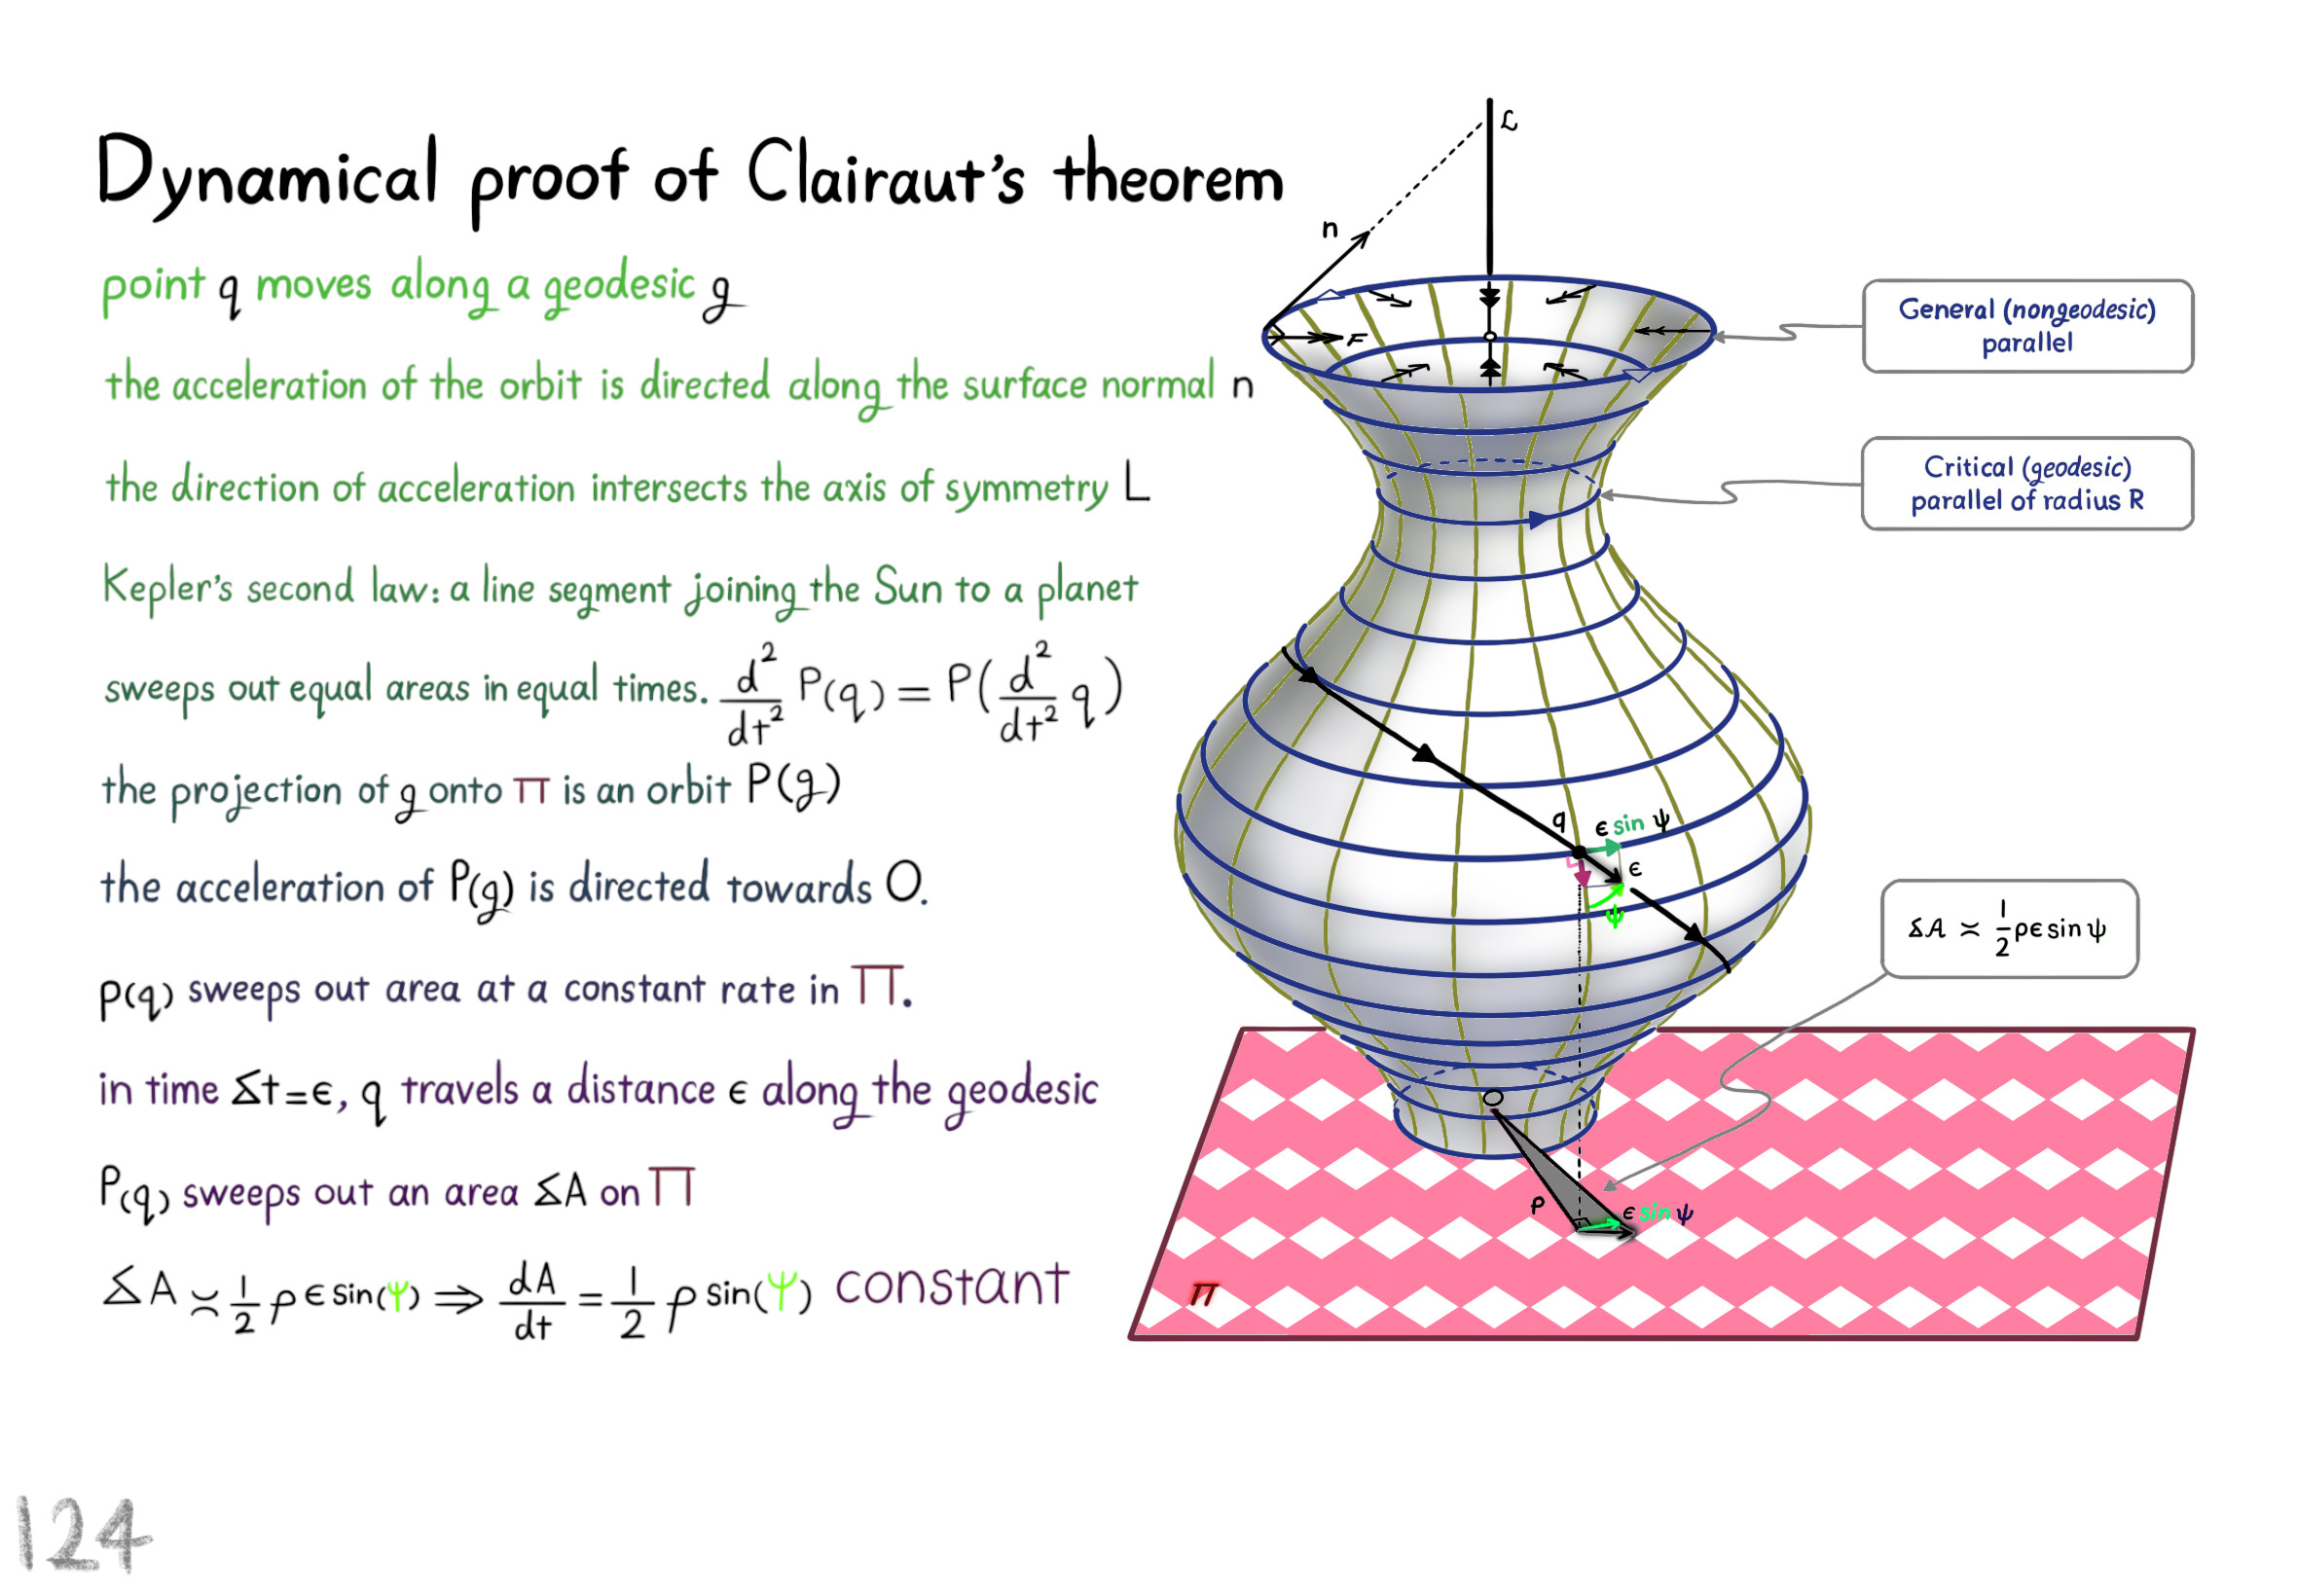 Dynamical proof of Clairaut's theorem
point q moves along a geodesic g
the acceleration of the orbit is directed along the surface normal n
the direction of acceleration intersects the axis of symmetry L
Kepler's second law: a line segment joining the Sun to a planet
sweeps out equal areas in equal times. d²/dt² P(q) = P(d²/dt² q)
the projection of g onto Π is an orbit P(g)
the acceleration of P(g) is directed towards O.
P(q) sweeps out area at a constant rate in Π.
in time δt=ϵ, q travels a distance ϵ along the geodesic
P(q) sweeps out an area δA on Π
δA ≍ 1/2 ρ ϵ sin(ψ) ⇒ dA/dt = 1/2 ρ sin(ψ) constant
124
L
n
F
General (nongeodesic)
parallel
Critical (geodesic)
parallel of radius R
q
ϵ sin ψ
ϵ
ψ
δA ≍ 1/2 ρϵ sin ψ
O
ρ
ϵ sin ψ
Π